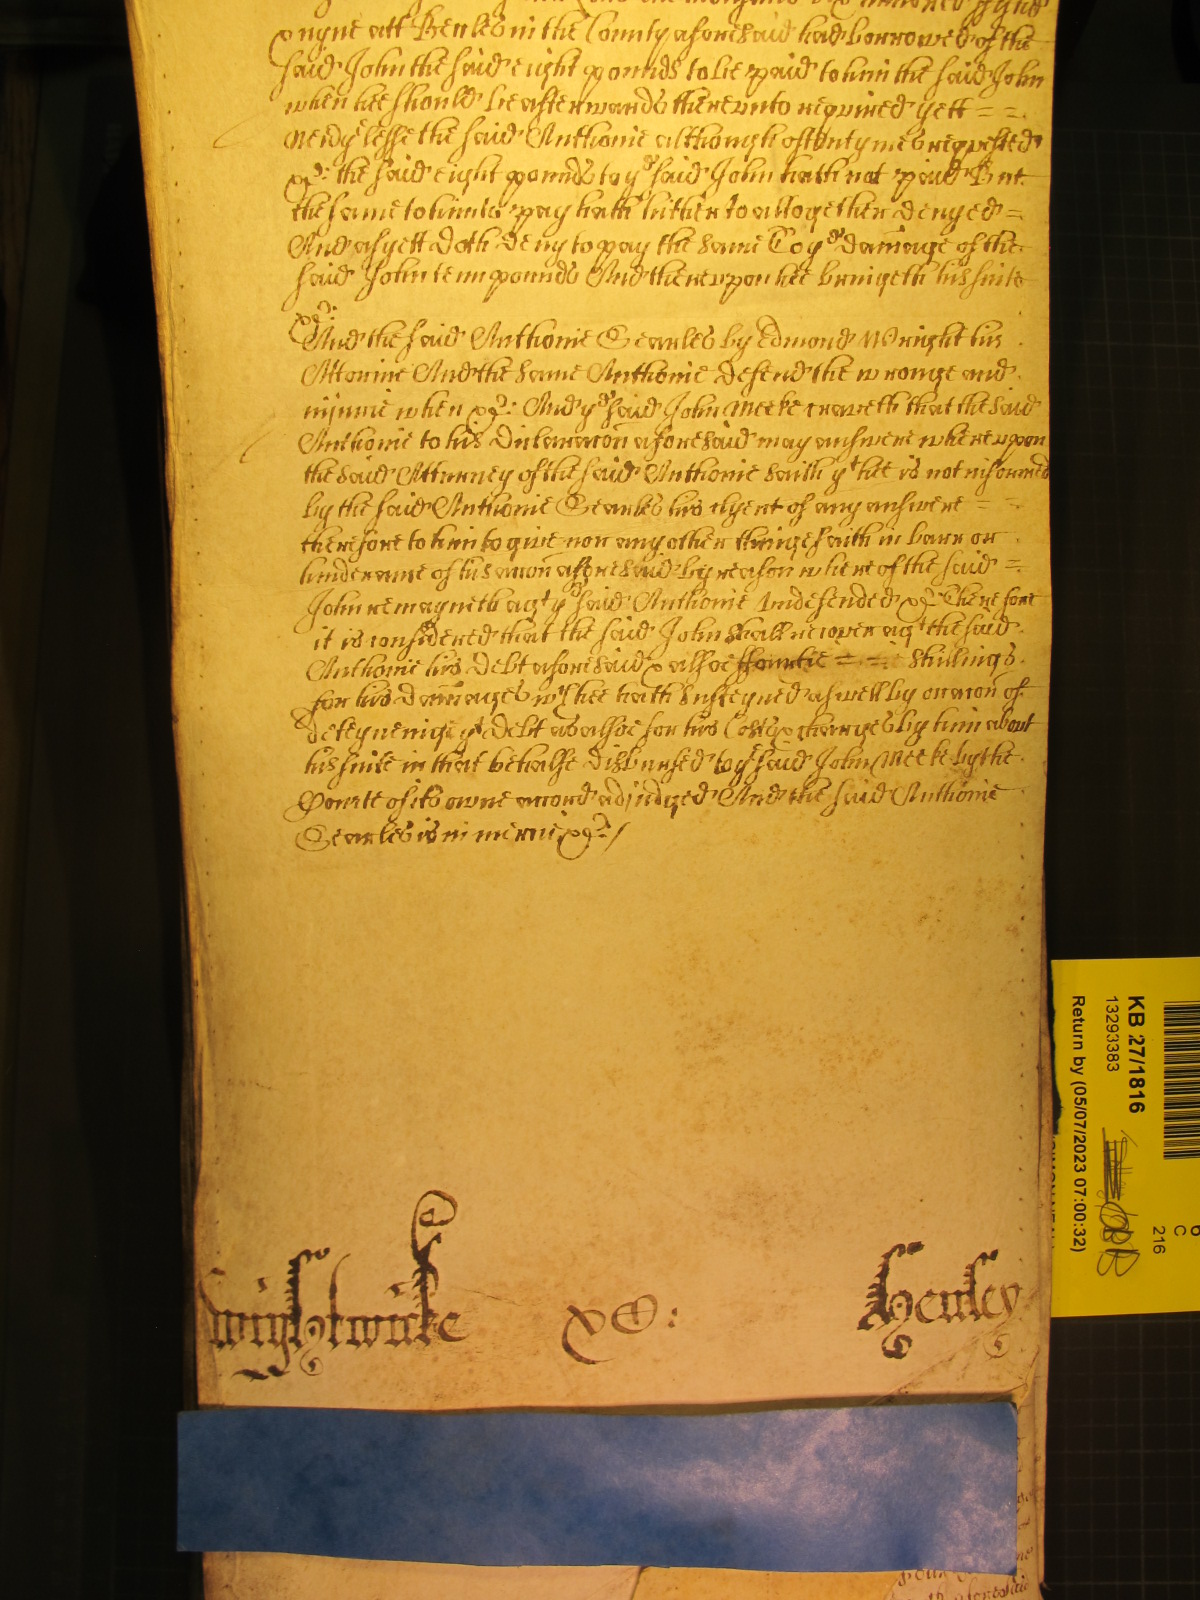 att Beckles in the County aforesaid had borrowed of the
said John the said eight pounds to be paid to him the said John
when hee should be afterwards therevnto required yett = =
the said Anthonie although oftentymes requested
&c: the said eight pounds to ye said John hath not paid But
the same to him to pay hath hitherto altogether denyed =
And as yett doth deny to pay the same To ye damage of the
said John tenn pounds And therevpon hee bringeth his suite
&c:
And the said Anthonie Searles by Edmond Wright his
Attornie And the same Anthonie defend the wronge and
iniurie when &c: And ye said John Meeke craveth that the said
Anthonie to his declaracon aforesaid may answere wherevpon
the said Atturney of the said Anthonie saith yt hee is not informed
by the said Anthonie Searles his Clyent of any answere = =
therefore to him to give nor any other thinge saith in barr or
hinderance of his accon aforesaid by reason whereof the said =
John remayneth agt ye said Anthonie vndefended &c Therefore
it is considered that the said John shall recover agt the said
Anthonie his debt aforesaid & alsoe ffourtie = = shillings
for his damages wch hee hath susteyned aswell by occacon of
deteyneinge ye debt as alsoe for his Costs & charges by him about
his suite in that behalfe disbursed to ye said John Meeke by the
Courte of its owne accord adjudged And the said Anthonie
Searles is in mercie &c /
Wightwicke
&c:
Henley
KB 27/1816
13293383
Return by (05/07/2023 07:00:32)
216
C
6